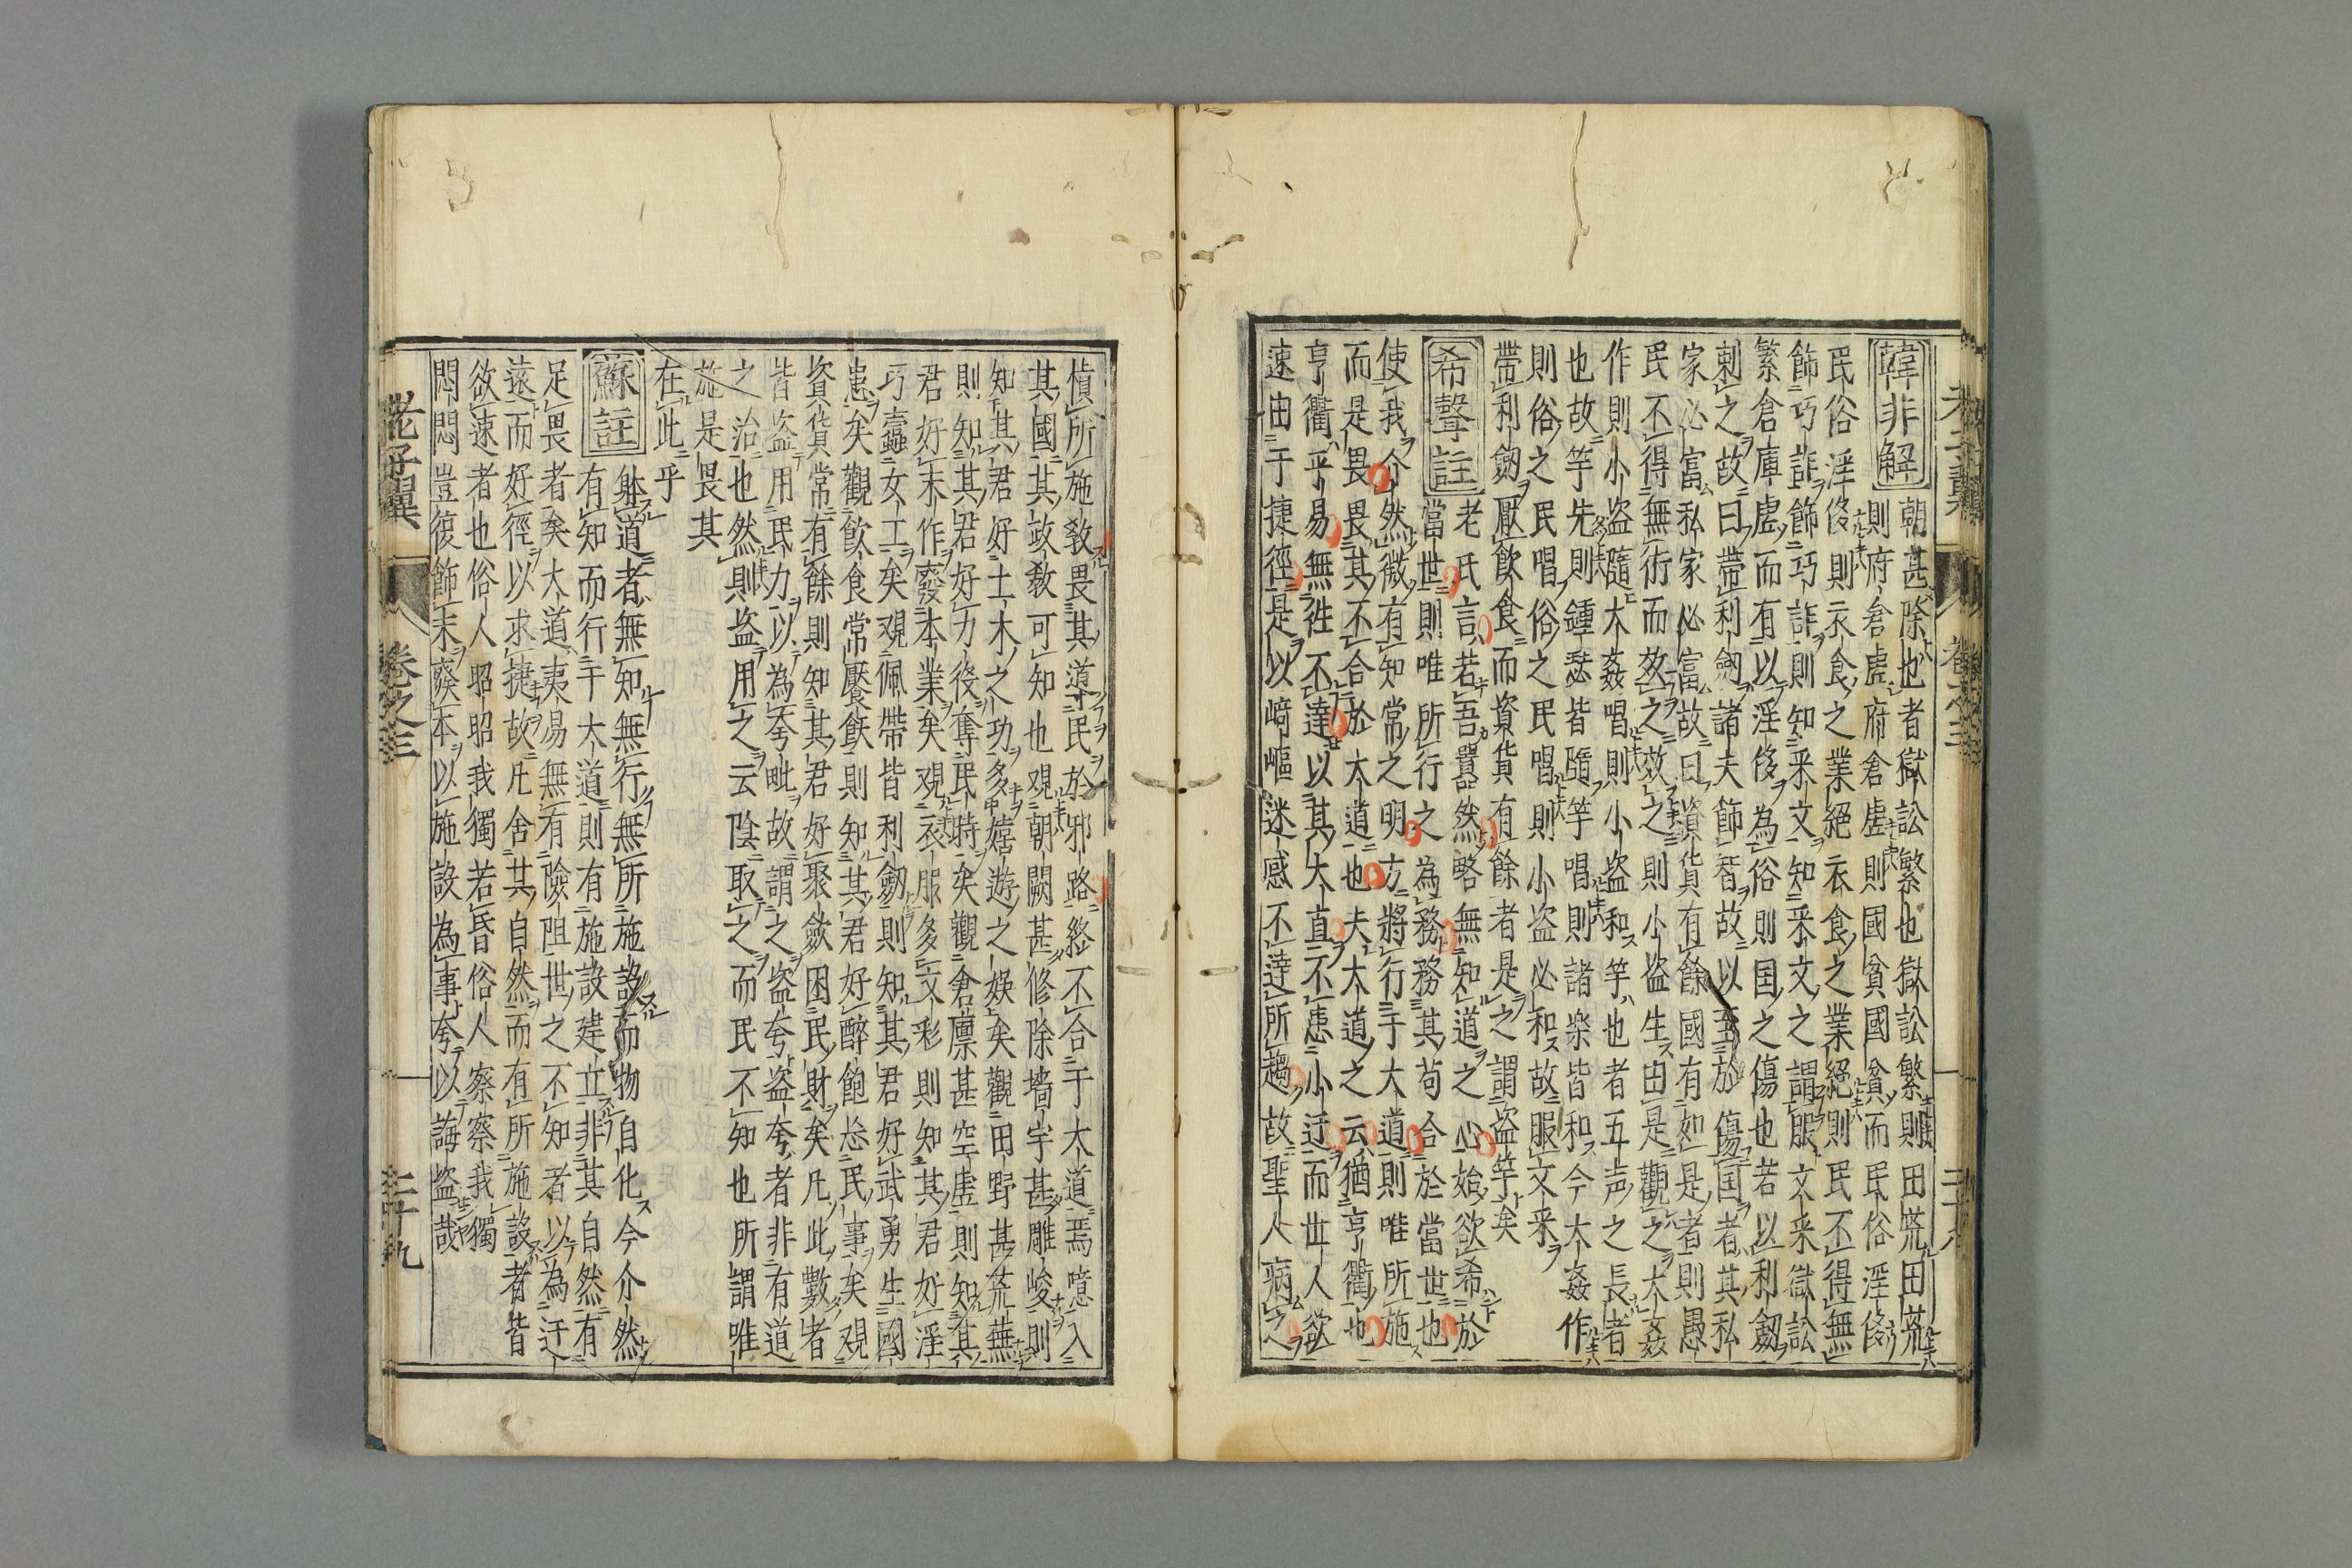 韓非解
朝甚除也者獄訟繁也獄訟繁則田荒田荒
則府倉虛府倉虛則國貧國貧而民俗淫侈
民俗淫侈則衣食之業絕衣食之業絕則民不得無
飾巧詐飾巧詐則知采文知采文之謂服文采獄訟
繁倉庫虛而有以淫侈為俗則国之傷也若以利劒
刺之故曰帶利劒諸夫飾智故以至於傷国者其私
家必富私家必富故曰資貨有餘國有如是者則愚
民不得無術而效之效之則小盗生由是觀之大姦
作則小盗隨大姦唱則小盗和竽也者五声之長者
也故竽先則鍾瑟皆隨竽唱則諸楽皆和今大姦作
則俗之民唱俗之民唱則小盗必和故服文采
帶利劒厭飲食而資貨有餘者是之謂盗竽矣
希聲註
老氏言若吾囂然略無知道之心始欲希於
當世則唯所行之為務務其苟合於當世也
使我介然微有知常之明方將行于大道則唯所施
而是畏畏其不合於大道也夫大道之云猶亨衢也
亨衢乎易無徃不達以其大直不患小迂而世人欲
速由于捷徑是以崎嶇迷惑不達所趨故聖人病之
老子翼 卷之三 三十八
楨所施敎畏其道民於邪路終不合于大道焉噫入
其國其政敎可知也覌朝闕甚修除墻宇甚雕峻則
知其君好土木之功多嬉遊之娛矣觀田野甚荒蕪
則知其君好力役奪民時矣觀倉廪甚空虛則知其
君好末作廢本業矣覌衣服多文彩則知其君好淫
巧蠧女工矣覌佩帶皆利劒則知其君好武勇生國
患矣觀飲食常饜飫則知其君好醉飽忘民事矣覌
資貨常有餘則知其君好聚斂困民財矣凡此數者
皆盗用民力以為夸毗故謂之盗夸盗夸者非有道
之治也然則盗用之云陰取之而民不知也所謂唯
施是畏其
在此乎
蘇註
體道者無知無行無所施設而物自化今介然
有知而行于大道則有施設建立非其自然有
足畏者矣大道夷易無有險阻世之不知者以為迂
遠而好徑以求捷故凡舍其自然而有所施設者皆
欲速者也俗人昭昭我獨若昏俗人察察我獨
悶悶豈復飾末廢本以施設為事夸以誨盗哉
老子翼 卷之三 三十九